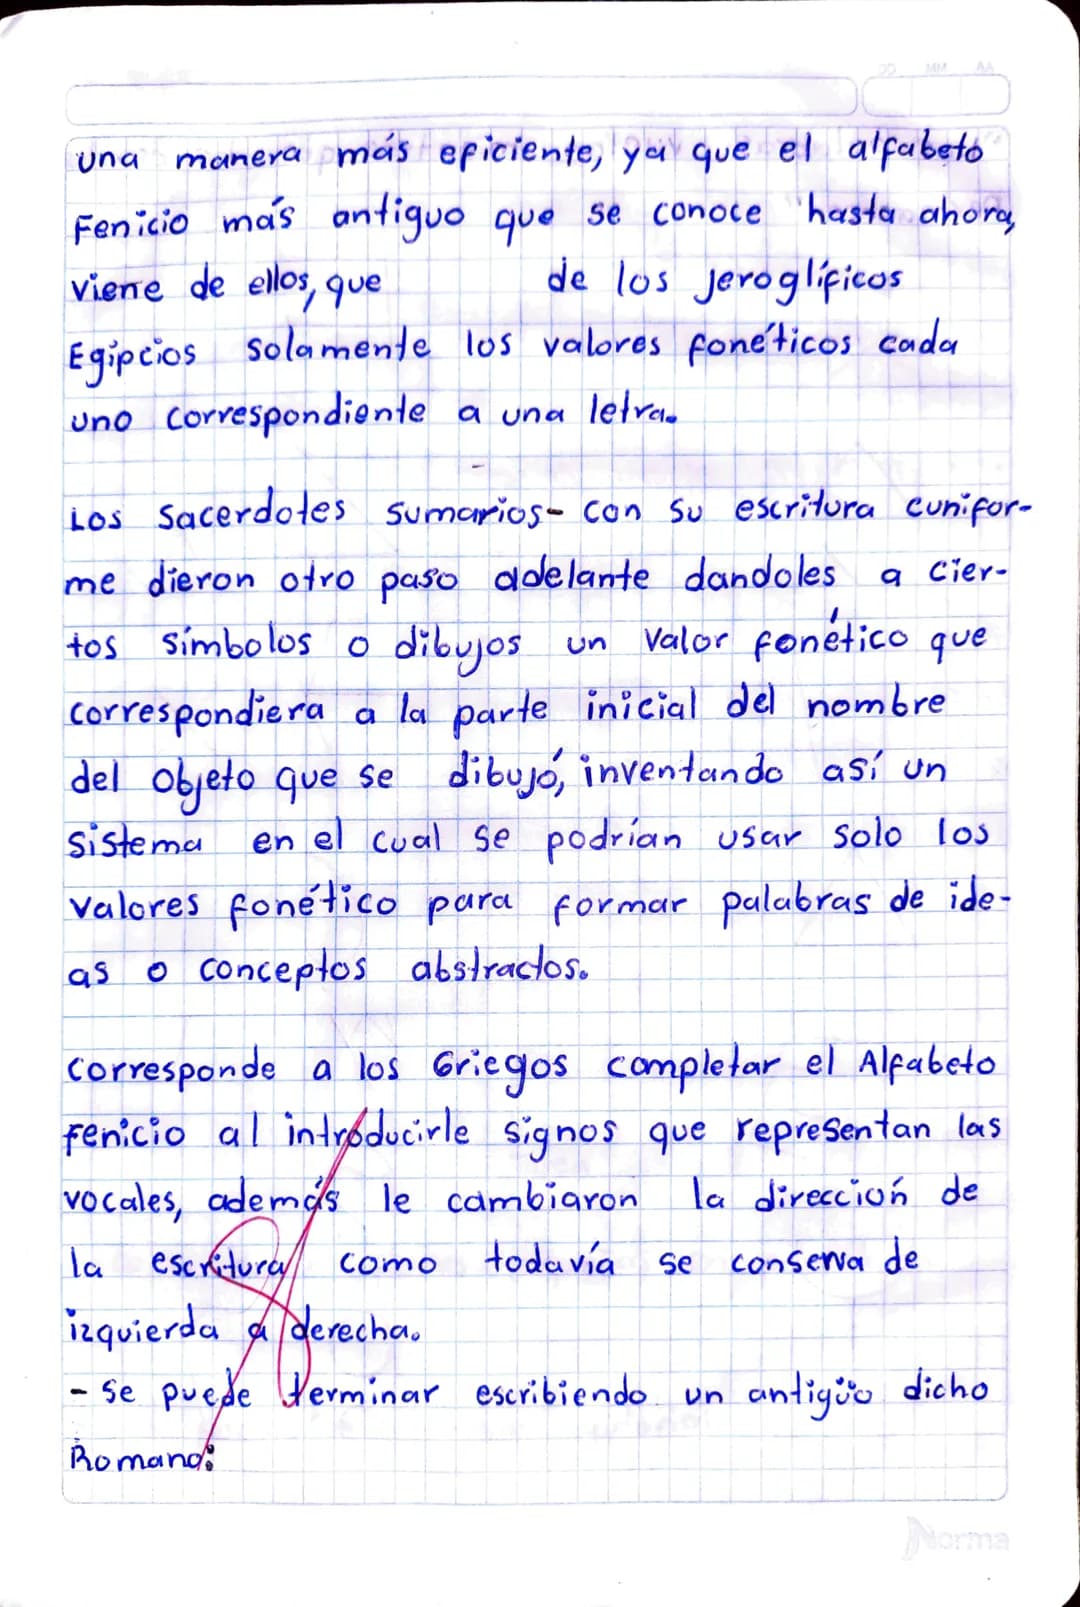 DD MM AA
una manera más eficiente, ya que el alfabeto
Fenicio más antiguo que se conoce hasta ahora,
viene de ellos, que de los jeroglíficos
Egipcios solamente los valores fonéticos cada
uno correspondiente a una letra.
Los Sacerdotes Sumarios- con su escritura cunifor-
me dieron otro paso adelante dandoles a cier-
tos símbolos o dibujos un valor fonético que
correspondiera a la parte inicial del nombre
del objeto que se dibujó, inventando así un
sistema en el cual se podrían usar solo los
valores fonético para formar palabras de ide-
as o conceptos abstractos.
corresponde a los Griegos completar el Alfabeto
fenicio al introducirle signos que representan las
vocales, además le cambiaron la dirección de
la escritura como todavía se conserva de
izquierda a derecha.
- se puede terminar escribiendo un antigüo dicho
Romano:
Norma